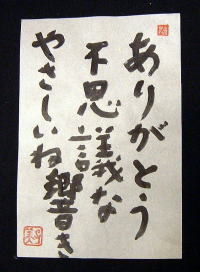 ありがとう
不思議な
やさしいね響き